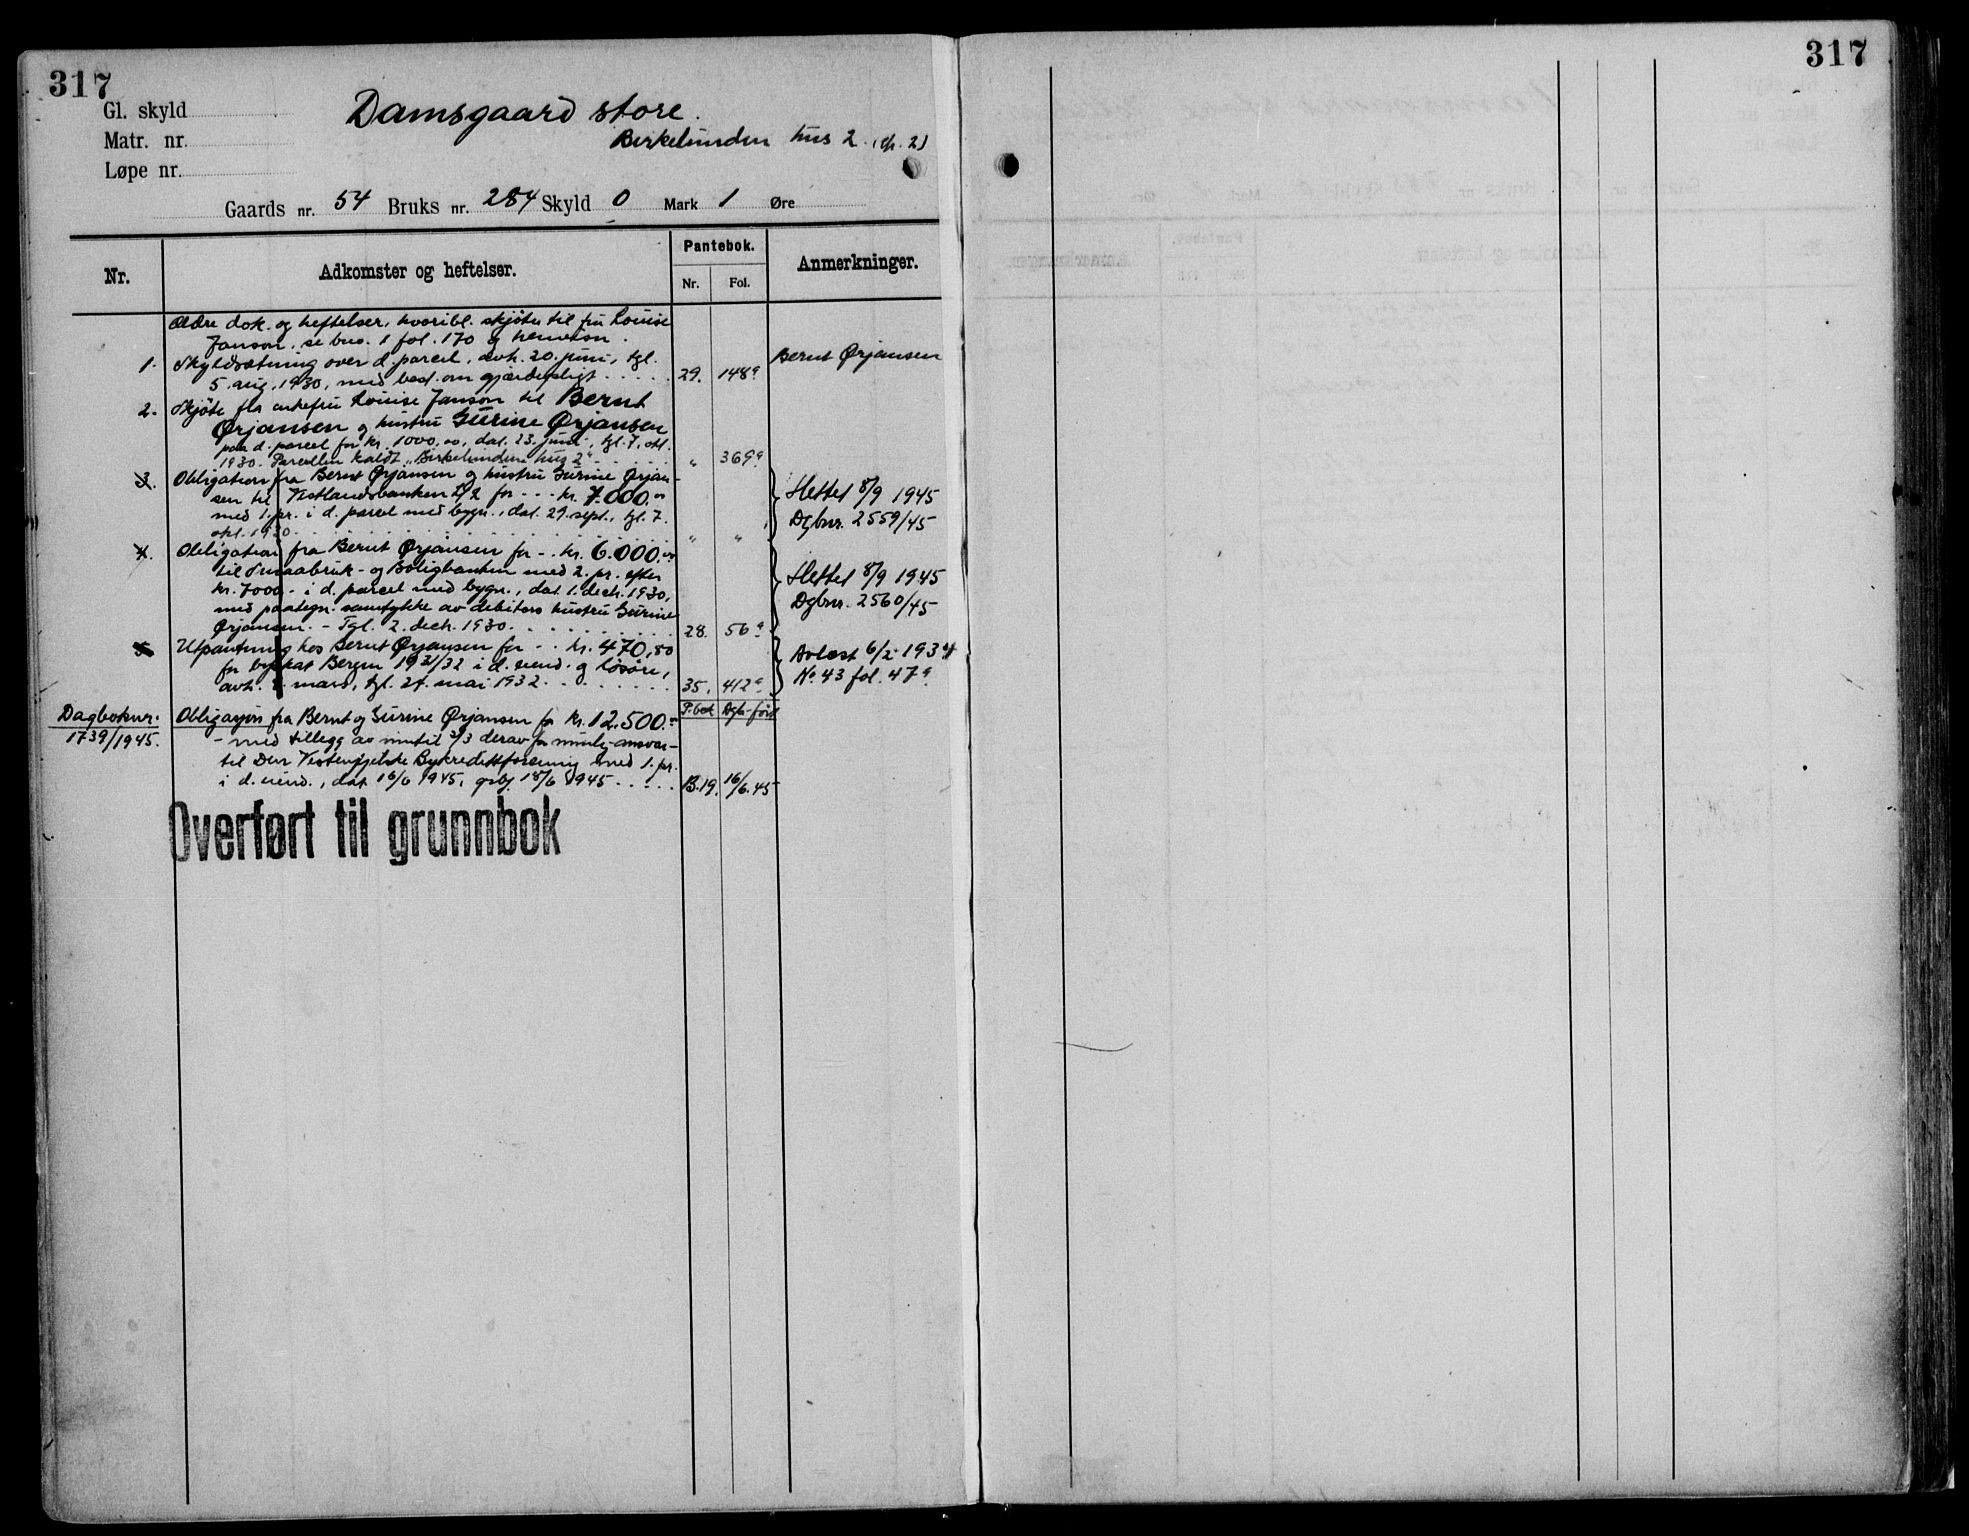 317
317
Gl. skyld
Matr. nr.
Løpe nr.
Damsgaard store.
Birkelunden hus 2
Gaards nr. 54 Bruks nr. 284 Skyld 0 Mark 1 Øre
Nr.
Adkomster og heftelser.
Pantebok.
Nr. Fol.
Anmerkninger.
Ældre dok. og heftelser, hvoribl. skjöte til fru Louise
Janson, se bno. 1 fol. 170 og henvisn.
1. Skyldsætning over d. parcel, avh. 20. juni, tgl.
5. aug. 1930, med best. om gjærdepligt . . . . . 29. 148ª
Bernt Ørjansen
2. Skjöte fra enkefru Louise Janson til Bernt
Ørjansen og hustru Gurine Ørjansen
paa d. parcel for kr. 1000,00, dat. 23. juni, tgl. 7. okt.
1930. Parcellen kaldt „Birkelunden hus 2" . . . . . " 369ª
3. Obligation fra Bernt Ørjansen og hustru Gurine Ørjan-
sen til Vestlandsbanken L/L for - - - kr. 7.000,00
med 1. pr. i d. parcel med bygn., dat. 29. sept., tgl. 7.
okt. 1930 . . . . . " "
Slettet 8/9 1945
Dgbnr. 2559/45
4. Obligation fra Bernt Ørjansen for - . kr. 6.000,00
til Smaabruk- og Boligbanken med 2. pr. efter
kr. 7000.- i d. parcel med bygn., dat. 1. decb. 1930,
med paategn. samtykke av debitors hustru Gurine
Ørjansen. - Tgl. 2. decb. 1930. . . . . . 28. 56ª
Slettet 8/9 1945
Dgbnr. 2560/45
5. Utpantning hos Bernt Ørjansen for - - kr. 470,80
for byskat Bergen 1931/32 i d. eiend. og lösöre,
avh. mars, tgl. 24. mai 1932 . . . . . 35. 412ª
Avlæst 6/2 1934
No. 43 fol. 47ª
P.bok Dgb.ført
Dagboknr.
1739/1945.
Obligasjon fra Bernt og Gurine Ørjansen for kr. 12.500.-
- med tillegg av inntil 2/3 derav for mulig ansvar -
til Den Vestenfjelske Bykredittforening med 1. pr.
i d. eiend., dat. 16/6 1945, 18/6 1945 . . . . . B.19. 16/6.45
Overført til grunnbok